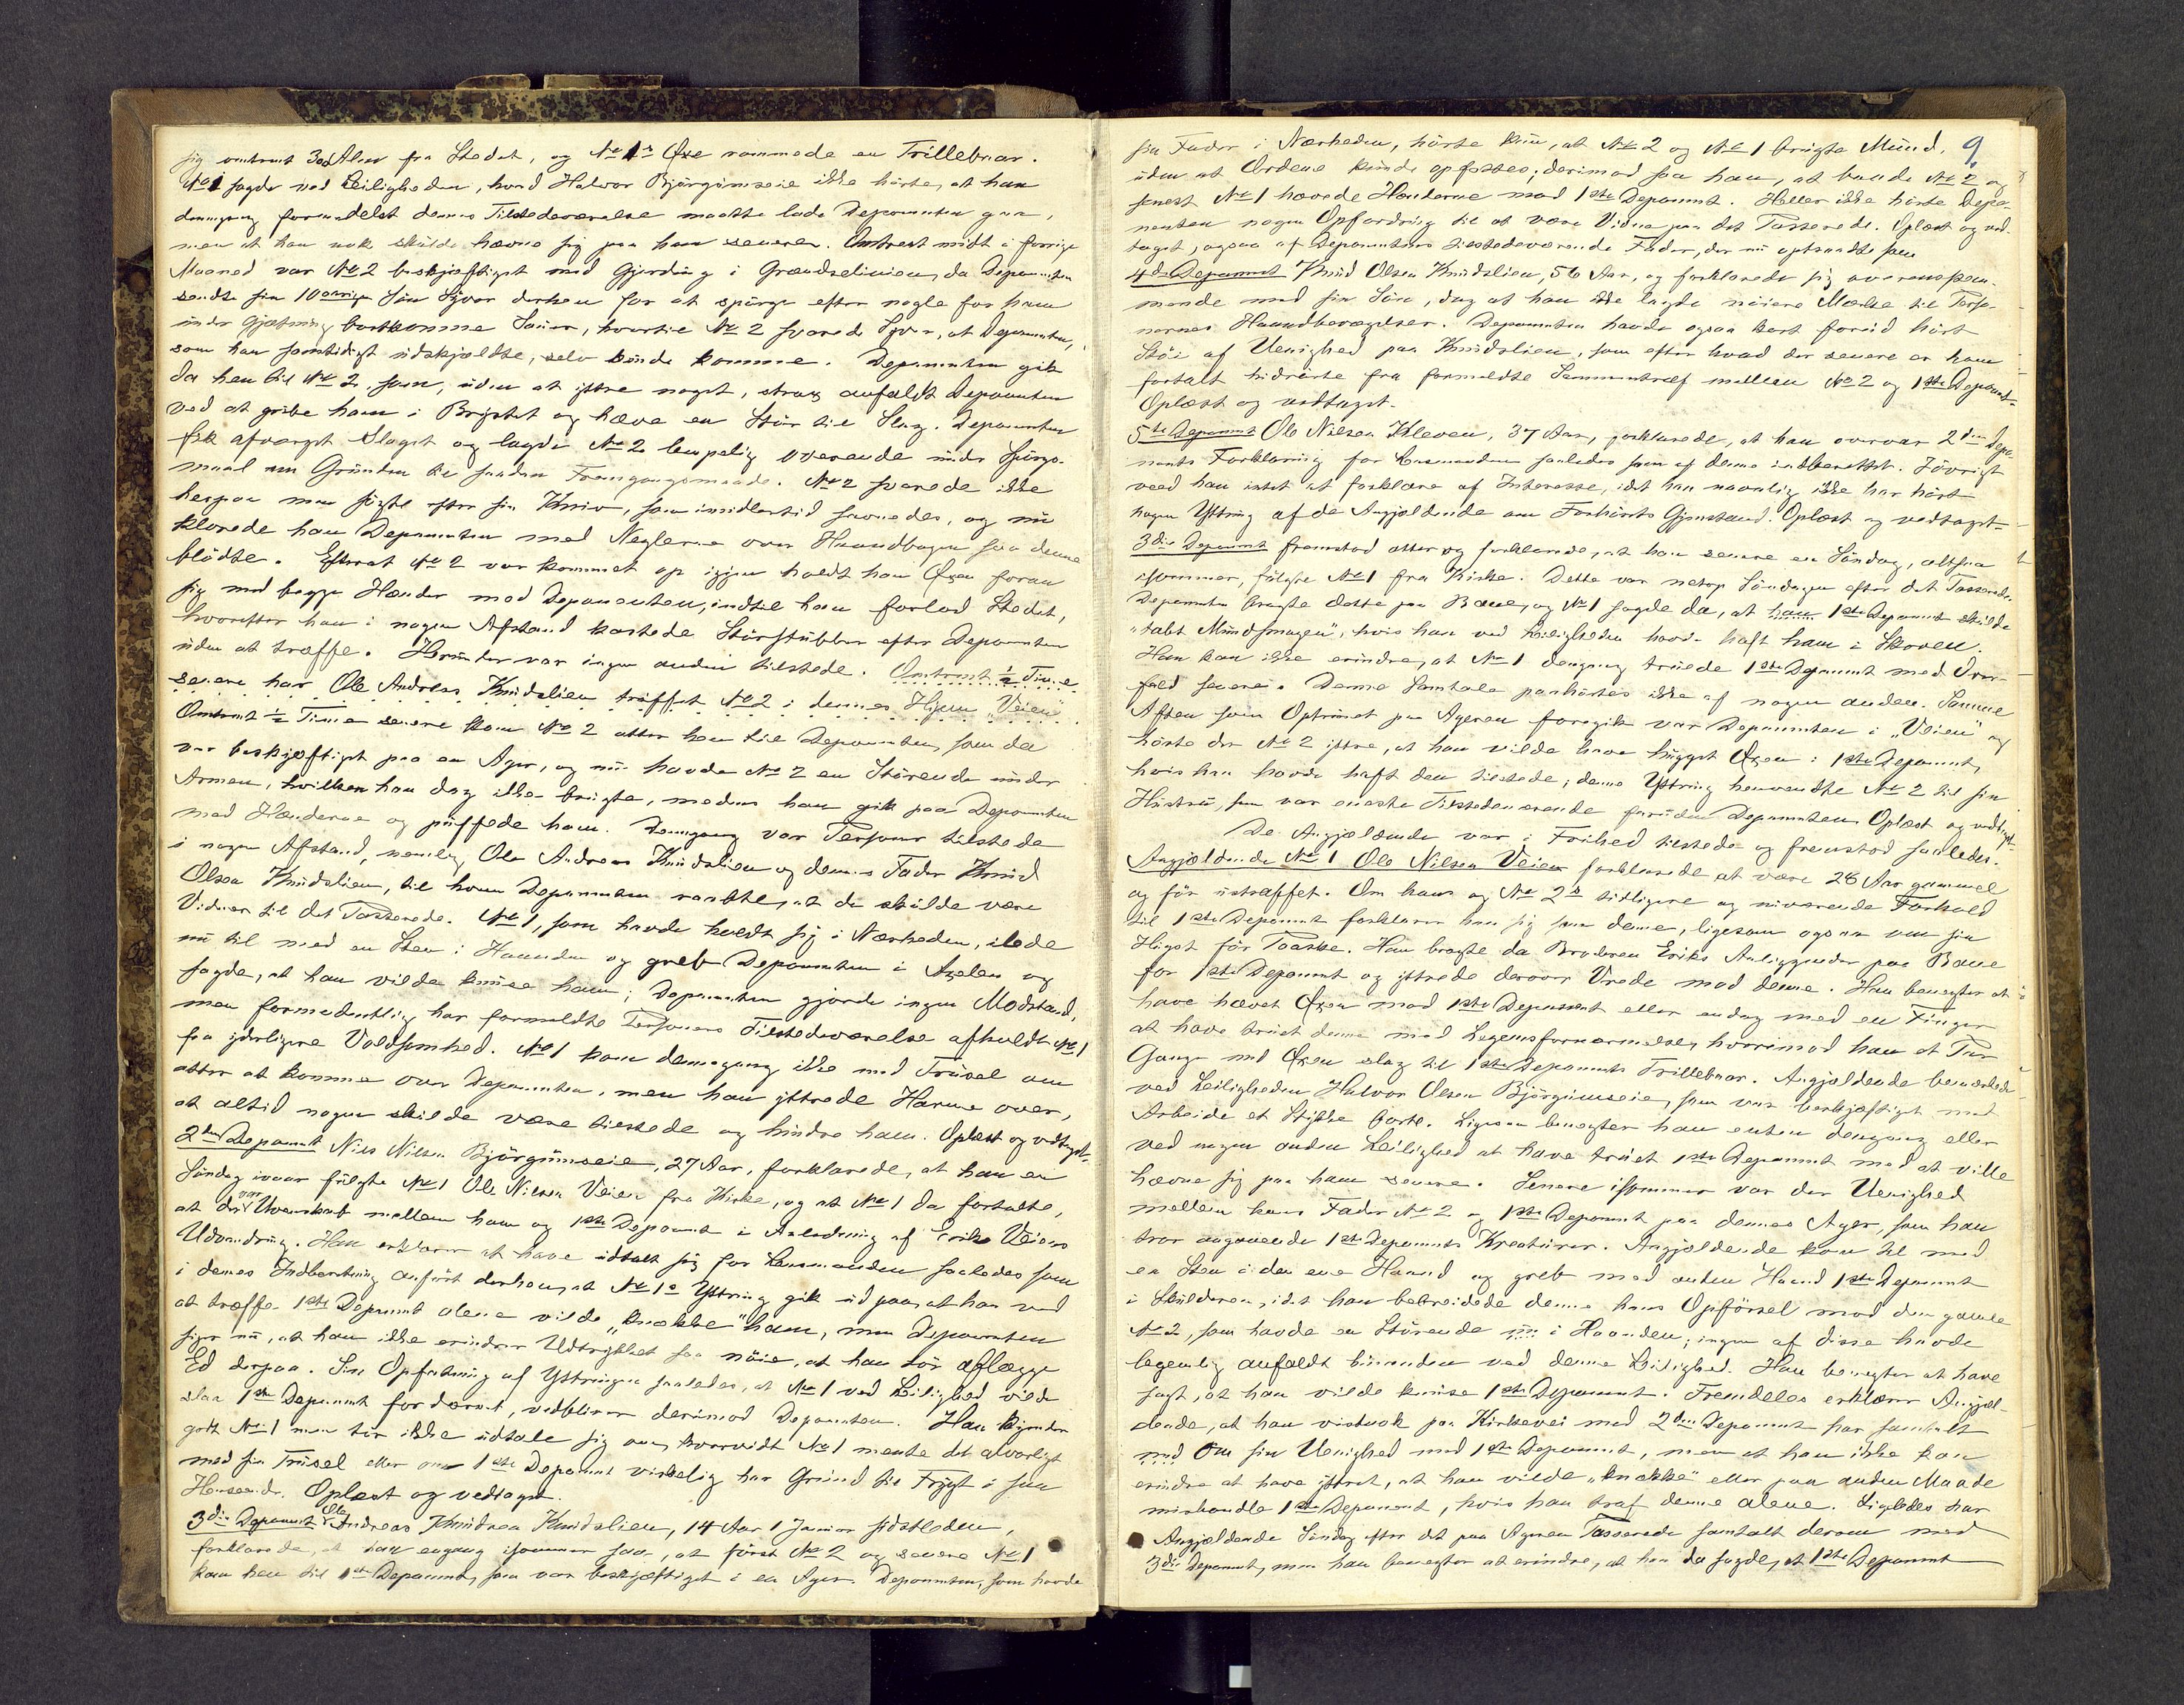 sig omtrent 30 Alen fra Stedet, og No 1s Øxe rammede en Trillebaar.
No 1 sagde ved Leiligheden, hvad Halvor Bjørgumseie ikke hørte, at han
dengang formedelst dennes Tilstedeværelse maatte lade Deponenten gaa,
men at han nok skulde hævne sig paa ham senere. Omtrent midt i forrige
Maaned var No 2 beskjæftiget med Gjerding i Grændselinien, da Deponenten
sendte sin 10aarige Søn Sjver derhen for at spørge efter nogle for ham
under Gjætning bortkomne Sauer, hvortil No 2 svarede Sjver, at Deponenten,
som han samtidigt udskjældte, selv kunde komme. Deponenten gik
da hen til No 2, som, uden at yttre noget, strax anfaldt Deponenten
ved at gribe ham i Brystet og hæve en Stør til Slag. Deponenten
fik afværget Slaget og lagde No 2 lempelig overende under Spørgs-
maal om Grunden til saadan Fremgangsmaade. No 2 svarede ikke
herpaa men søgte efter sin Kniv, som imidlertid savnedes, og nu
klorede han Deponenten med Neglerne over Haandbagen saa denne
blødte. Efterat No 2 var kommet op igjen holdt han Øxen foran
sig med begge Hænder mod Deponenten, indtil han forlod Stedet,
hvorefter han i nogen Afstand kastede Størstubber efter Deponenten
uden at træffe. Herunder var ingen anden tilstede. Omtrent ½ Time
senere har Ole Andreas Knudslien truffet No 2 i dennes Hjem "Veien".
Omtrent ½ Time senere kom No 2 atter hen til Deponenten, som da
var beskjæftiget paa en Ager, og nu havde No 2 en Størende under
Armen, hvilken han dog ikke brugte, medens han gik paa Deponenten
med Hænderne og puffede ham. Dengang var Personer tilstede
i nogen Afstand, nemlig Ole Andreas Knudslien og dennes Fader Knud
Olsen Knudslien, til hvem Deponenten raabte, at de skulde være
Vidner til det Passerede. No 1, som havde holdt sig i Nærheden, ilede
nu til med en Sten i Haanden og greb Deponenten i Axelen og
sagde, at han vilde knuse ham; Deponenten gjorde ingen Modstand,
men formodentlig har formeldte Personers Tilstedeværelse afholdt No 1
fra yderligere Voldsomhed. No 1 kom dennegang ikke med Trusel om
atter at komme over Deponenten, men han yttrede Harme over,
at altid nogen skulde være tilstede og hindre ham. Oplæst og vedtaget.
2den Deponent Nils Nilsen Bjørgumseie, 27 Aar, forklarede, at han en
Søndag ivaar fulgte No 1 Ole Nilsen Veien fra Kirke, og at No 1 da fortalte,
at der var Uvenskab mellem ham og 1ste Deponent i Anledning af Eriks Veiens
Udvandring. Han erklærer at have udtalt sig for Lensmanden saaledes som
i dennes Indberetning anført derhen, at No 1s Yttring gik ud paa, at han ved
at træffe 1ste Deponent alene vilde "knække" ham, men Deponenten
siger nu, at han ikke erindrer Udtrykket saa nøie, at han tør aflægge
Ed derpaa. Sin Opfatning af Yttringen saaledes, at No 1 ved Leilighed vilde
slaa 1ste Deponent fordærvet, vedbliver derimod Deponenten. Han kjender
godt No 1 men tør ikke udtale sig om, hvorvidt No 1 mente det alvorligt
med sin Trusel eller om 1ste Deponent virkelig har Grund til Frygt i saa
Henseende. Oplæst og vedtaget.
3die Deponent Ole Andreas Knudsen Knudslien, 14 Aar 1 Januar sidstleden,
forklarede, at han engang isommer saa, at først No 2 og senere No 1
kom hen til 1ste Deponent, som var beskjæftiget i en Ager. Deponenten, som havde
9
sin Fader i Nærheden, hørte kun, at No 2 og No 1 brugte Mund,
uden at Ordene kunde opfattes; derimod saa han, at baade No 2 og
senest No 1 hævede Hænderne mod 1ste Deponent. Heller ikke hørte Depo-
nenten nogen Opfordring til at være Vidne paa det Passerede. Oplæst og ved-
taget, ogsaa af Deponentens tilstedeværende Fader, der nu optraadte som
4de Deponent Knud Olsen Knudslien, 56 Aar, og forklarede sig overensstem-
mende med sin Søn, dog at han ikke lagde nøiere Mærke til Perso-
nernes Haandbevægelser. Deponenten havde ogsaa kort forud hørt
Støi af Uenighed paa Knudslien, som efter hvad der senere er ham
fortalt hidrørte fra formeldte Sammentræf mellem No 2 og 1ste Deponent.
Oplæst og vedtaget.
5te Deponent Ole Nilsen Kleven, 37 Aar, forklarede, at han overvar 2den Depo-
nents Forklaring for Lensmanden saaledes som af denne indberettet. Iøvrigt
veed han intet at forklare af Interesse, idet han navnlig ikke har hørt
nogen Yttring af de Angjældende om Forhørets Gjenstand. Oplæst og vedtaget.
3die Deponent fremstod atter og forklarede, at han senere en Søndag, altsaa
isommer, fulgte No 1 fra Kirke. Dette var netop Søndagen efter det Passerede.
Deponenten bragte dette paa Bane, og No 1 sagde da, at han 1ste Deponent skulde
"tabt Mundsmagen", hvis han ved Leiligheden havde haft ham i Skoven.
Han kan ikke erindre, at No 1 dengang truede 1ste Deponent med Over-
fald senere. Denne Samtale paahørtes ikke af nogen anden. Samme
Aften som Optrinet paa Ageren foregik var Deponenten i "Veien" og
hørte der No 2 yttre, at han vilde have hugget Øxen i 1ste Deponent,
hvis han havde haft den tilstede; denne Yttring henvendte No 2 til sin
Hustru, som var eneste Tilstedeværende foruden Deponenten. Oplæst og vedtaget.
De Angjældende var i Frihed tilstede og fremstod saaledes.
Angjældende No 1 Ole Nilsen Veien forklarede at være 28 Aar gammel
og før ustraffet. Om hans og No 2s tidligere og nuværende Forhold
til 1ste Deponent forklarer han sig som denne, ligesom ogsaa om sin
Hugst før Paaske. Han bragte da Broderen Eriks Anliggender paa Bane
for 1ste Deponent og yttrede derover Vrede mod denne. Han benegter at
have hævet Øxen mod 1ste Deponent eller endog med en Finger
at have truet denne med Legemsfornærmelse, hvorimod han et Par
Gange med Øxen slog til 1ste Deponents Trillebaar. Angjældende bemærkede
ved Leiligheden Halvor Olsen Bjørgumseie, som var beskjæftiget med
Arbeide et Stykke borte. Ligesaa benegter han enten dengang eller
ved nogen anden Leilighed at have truet 1ste Deponent med at ville
hævne sig paa ham senere. Senere isommer var der Uenighed
mellem hans Fader No 2 og 1ste Deponent paa dennes Ager, som han
tror angaaende 1ste Deponents Kreaturer. Angjældende kom til med
en Sten i den ene Haand og greb med anden Haand 1ste Deponent
i Skulderen, idet han bebreidede denne hans Opførsel mod den gamle
No 2, som havde en Størende i Haanden; ingen af disse havde
legemlig anfaldt hinanden ved denne Leilighed. Han benegter at have
sagt, at han vilde knuse 1ste Deponent. Fremdeles erklærer Angjæl-
dende, at han vistnok paa Kirkevei med 2den Deponent har samtalt
med Om sin Uenighed med 1ste Deponent, men at han ikke kan
erindre at have yttret, at han vilde "knække" eller paa anden Maade
mishandle 1ste Deponent, hvis han traf denne alene. Ligeledes har
Angjældende Søndag efter det paa Ageren Passerede samtalt derom med
3die Deponent, men han benegter at erindre, at han da sagde, at 1ste Deponent